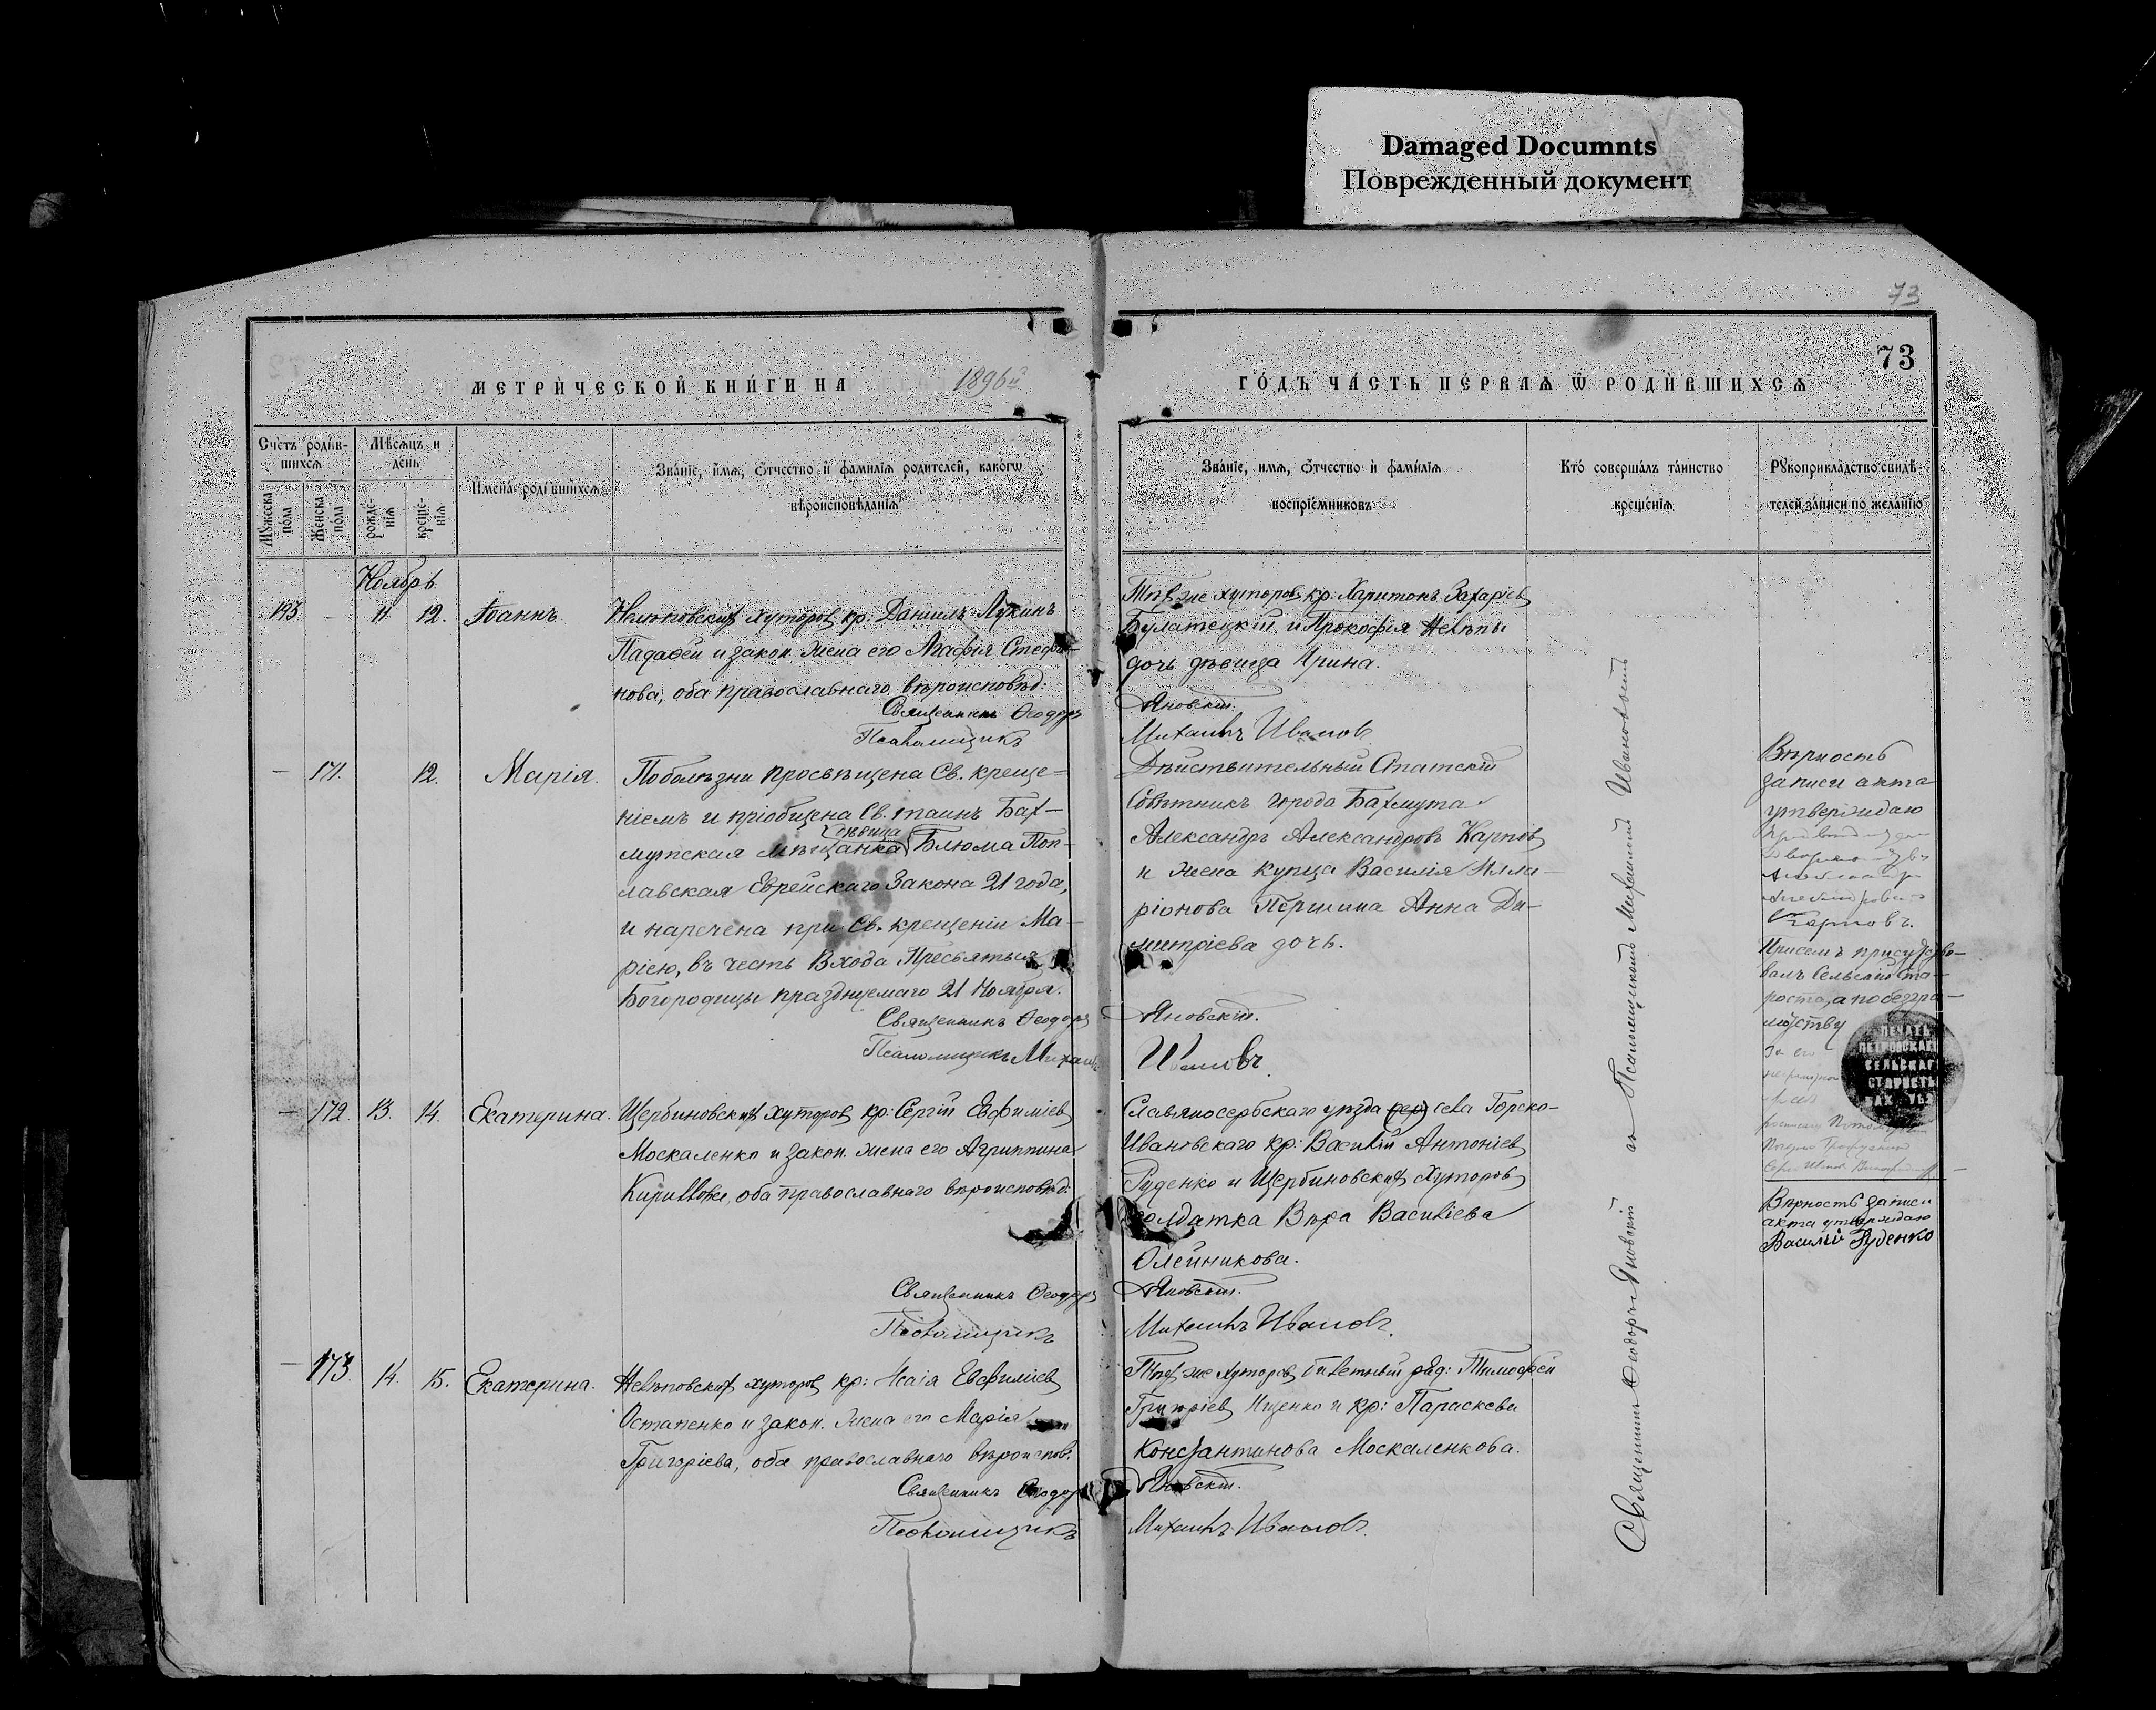 Damaged Documnts
Поврежденный документ
73
73
МЕТРИ́ЧЕСКОЙ КНИ́ГИ НА 1896й
ГО́ДЪ ЧА́СТЬ ПЕ́РВАѦ Ѿ РОДИ́ВШИХСѦ
Сче́тъ роди́в-
шихсѧ
Мꙋ́жеска по́ла
Же́нска по́ла
Мѣ́сѧцъ и
де́нь
рожде́-
нїѧ
креще́-
нїѧ
И҆мена̀ роди́вшихсѧ
Зва́нїе, и҆́мѧ, ѻ҆́тчество и҆ фами́лїѧ роди́телей, како́гѡ
вѣроисповѣ́данїѧ
Зва́нїе, и҆́мѧ, ѻ҆́тчество и҆ фами́лїѧ
воспрїе́мниковъ
Кто̀ соверша́лъ та́инство
креще́нїѧ
Рꙋкоприкла́дство свидѣ́-
телей за́писи по жела́нїю
Ноябрь
193. - 11 12. Іоаннъ.
Нелѣповскихъ хуторовъ кр: Даніилъ Лукинъ
и закон. жена его Агафія Стефа-
нова, оба православнаго вѣроисповѣд:
Священникъ Ѳеодоръ
Псаломщикъ
Тѣхъ же хуторовъ кр: Харитонъ Захаріевъ
Булатецкій и Прокофія Нелѣпы
дочь дѣвица Ирина.
Яновскій.
Михаилъ Ивановъ
— 171. 12. Марія.
По болѣзни просвѣщена Св. креще-
ніемъ и пріобщена Св. таинъ Бах-
дѣвица
мутская мѣщанка Блюма Поп-
лавская Еврейскаго Закона 21 года,
и наречена при Св. крещеніи Ма-
ріею, въ честь Входа Пресвятыя
Богородицы празднуемаго 21 Ноября.
Священникъ Ѳеодоръ
Псаломщикъ Михаилъ
Дѣйствительный Статскій
Совѣтникъ города Бахмута
Александръ Александровъ Карповъ
и жена купца Василія Илла-
ріонова Першина Анна Ди-
митріева дочь.
Яновскій.
Ивановъ.
Вѣрность
записи акта
утверждаю
Карповъ.
При семъ присутство-
валъ Сельскій Ста-
роста, а по безгра-
мотству
за его
ПЕЧАТЬ
ПЕТРОВСКАГО
СЕЛЬСКАГО
СТАРОСТЫ
БАХ. УѢЗ.
— 172. 13. 14. Екатерина.
Щербиновскихъ хуторовъ кр: Сергій Евфиміевъ
Москаленко и закон. жена его Агриппина
Кириллова, оба православнаго вѣроисповѣд:
Священникъ Ѳеодоръ
Псаломщикъ
Славяносербскаго уѣзда села Горско-
Ивановскаго кр: Василій Антоніевъ
Руденко и Щербиновскихъ хуторовъ
солдатка Вѣра Василіева
Олейникова.
Яновскій.
Михаилъ Ивановъ.
Вѣрность записи
акта утверждаю
Василій Руденко
— 173. 14. 15. Екатерина.
Нелѣповскихъ хуторовъ кр: Исаія Евфиміевъ
Остапенко и закон. жена его Марія
Григоріева, оба православнаго вѣроиспов.
Священникъ Ѳеодоръ
Псаломщикъ
Тѣхъ же хуторовъ билетный ряд: Тимофей
Григоріевъ Ищенко и кр: Параскева
Константинова Москаленкова.
Яновскій.
Михаилъ Ивановъ.
Священникъ Ѳеодоръ Яновскій съ Псаломщикомъ Михаиломъ Ивановымъ